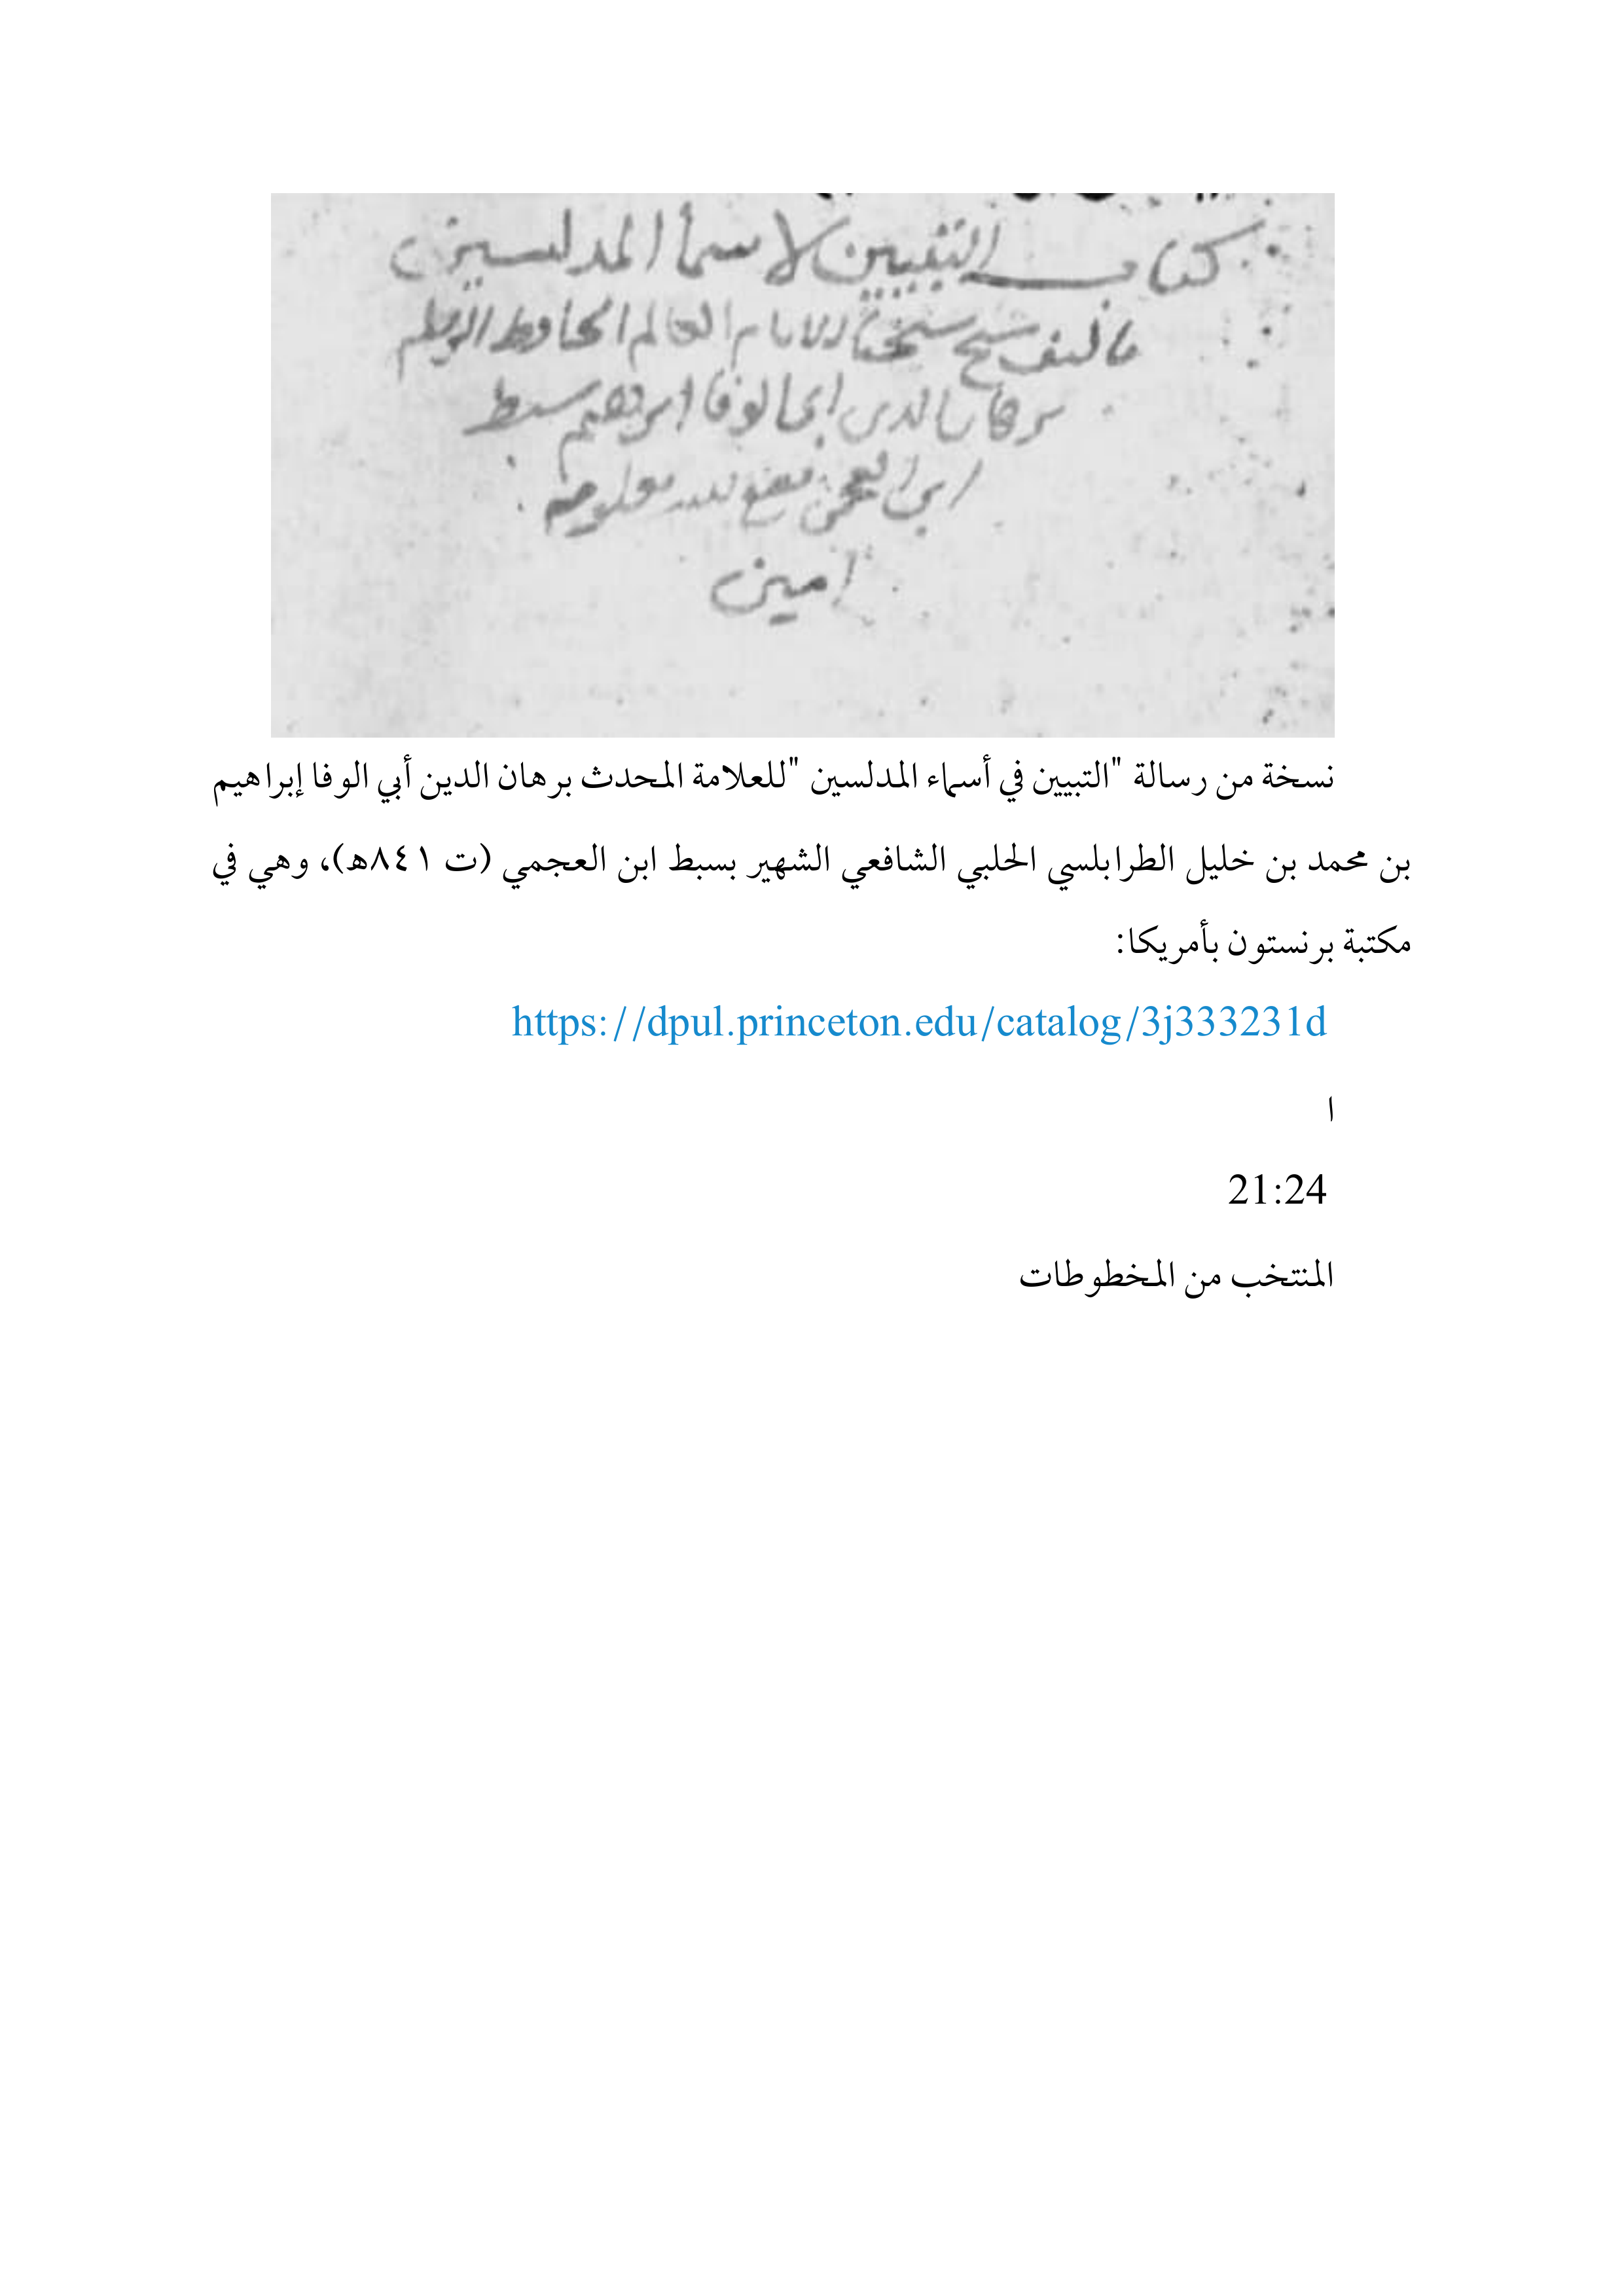 كتاب التبيين لاسمأ المدلسين
تاليف شيخ شيخنا الامام العالم الحافظ
برهان الدين ابي الوفا ابرهيم سبط
ابن العجمي نفع بعلومه
امين
نسخة من رسالة "التبيين في أسماء المدلسين "للعلامة المحدث برهان الدين أبي الوفا إبراهيم
بن محمد بن خليل الطرابلسي الحلبي الشافعي الشهير بسبط ابن العجمي (ت ٨٤١هـ)، وهي في
مكتبة برنستون بأمريكا:
https://dpul.princeton.edu/catalog/3j333231d
ا
21:24
المنتخب من المخطوطات